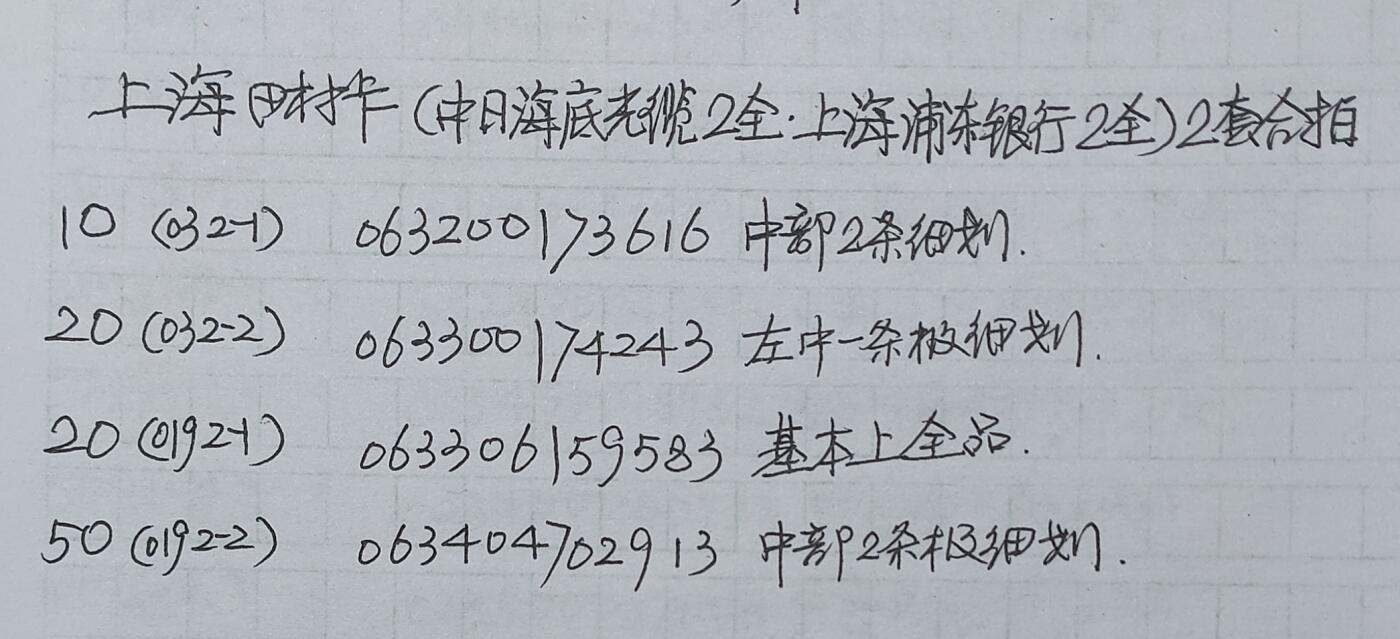 上海田村卡(中日海底光缆2全·上海浦东银行2全)2套合拍
10 (032-1) 063200173616 中部2条细划.
20 (032-2) 063300174243 左中一条极细划.
20 (0192-1) 063306159583 基本上全品.
50 (0192-2) 063404702913 中部2条极细划.